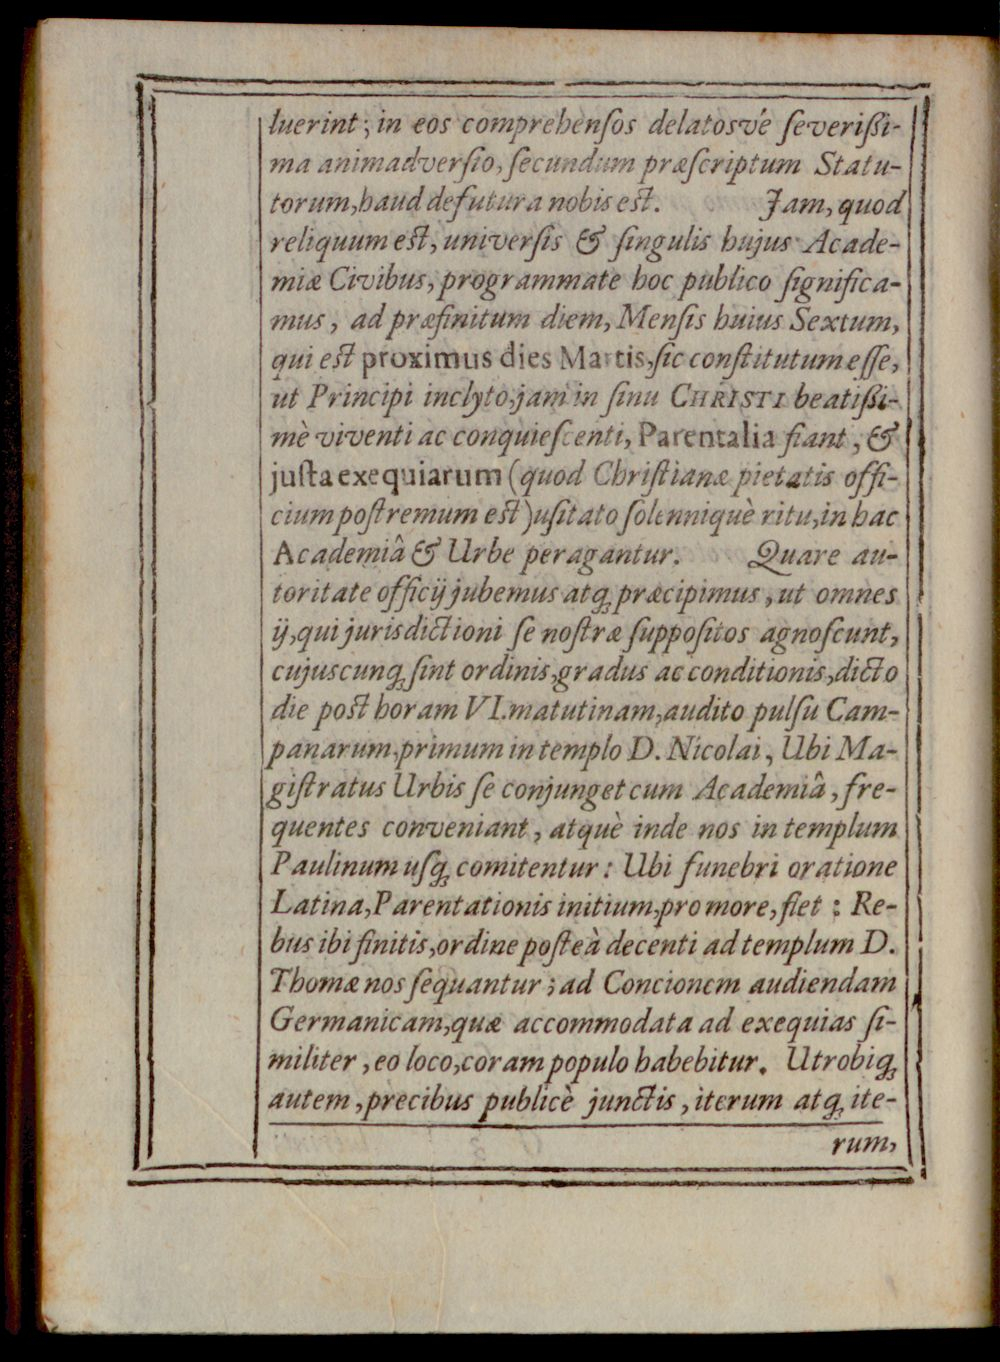 luerint; in eos comprehenſos delatosvé ſeverißi-
ma animadverſio, ſecundum præſcriptum Statu-
torum, haud defutura nobis est. Jam, quod
reliquum est, univerſis & ſingulis hujus Acade-
miæ Civibus, programmate hoc publico ſignifica-
mus, ad præfinitum diem, Menſis huius Sextum,
qui est proximus dies Martis, ſic conſtitutum eſſe,
ut Principi inclyto, jam in ſinu CHRISTI beatißi-
mè viventi ac conquieſcenti, Parentalia fiant, &
juſta exequiarum (quod Chriſtianæ pietatis offi-
cium poſtremum est) uſitato ſolenniquè ritu, in hac
Academiâ & Urbe peragantur. Quare au-
toritate officij jubemus atq́; præcipimus, ut omnes
ij, qui jurisdictioni ſe noſtræ ſuppoſitos agnoſcunt,
cujuscunq́; ſint ordinis, gradus ac conditionis, dicto
die post horam VI. matutinam, audito pulſu Cam-
panarum, primum in templo D. Nicolai, Ubi Ma-
giſtratus Urbis ſe conjunget cum Academiâ, fre-
quentes conveniant, atquè inde nos in templum
Paulinum uſq́; comitentur: Ubi funebri oratione
Latina, Parentationis initium, pro more, fiet: Re-
bus ibi finitis, ordine poſteà decenti ad templum D.
Thomæ nos ſequantur; ad Concionem audiendam
Germanicam, quæ accommodata ad exequias ſi-
militer, eo loco, coram populo habebitur. Utrobiq́;
autem, precibus publicè junctis, iterum atq́; ite-
rum,